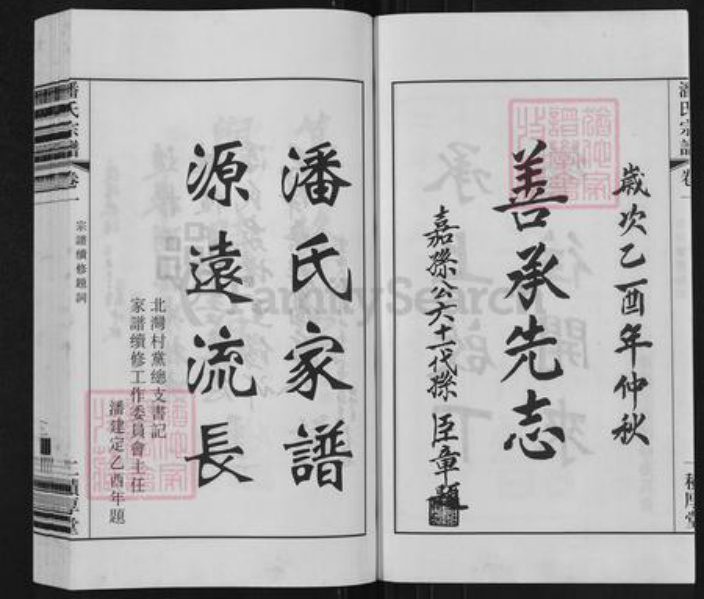 潘氏宗譜
卷一
積厚堂
歲次乙酉年仲秋
善承先志
嘉孫公六十一代孫 臣章題
潘氏家譜
源遠流長
北灣村黨總支書記
家譜續修工作委員會主任
潘建定乙酉年題
潘氏宗譜
卷一
宗譜續修題詞
二
積厚堂
FamilySearch